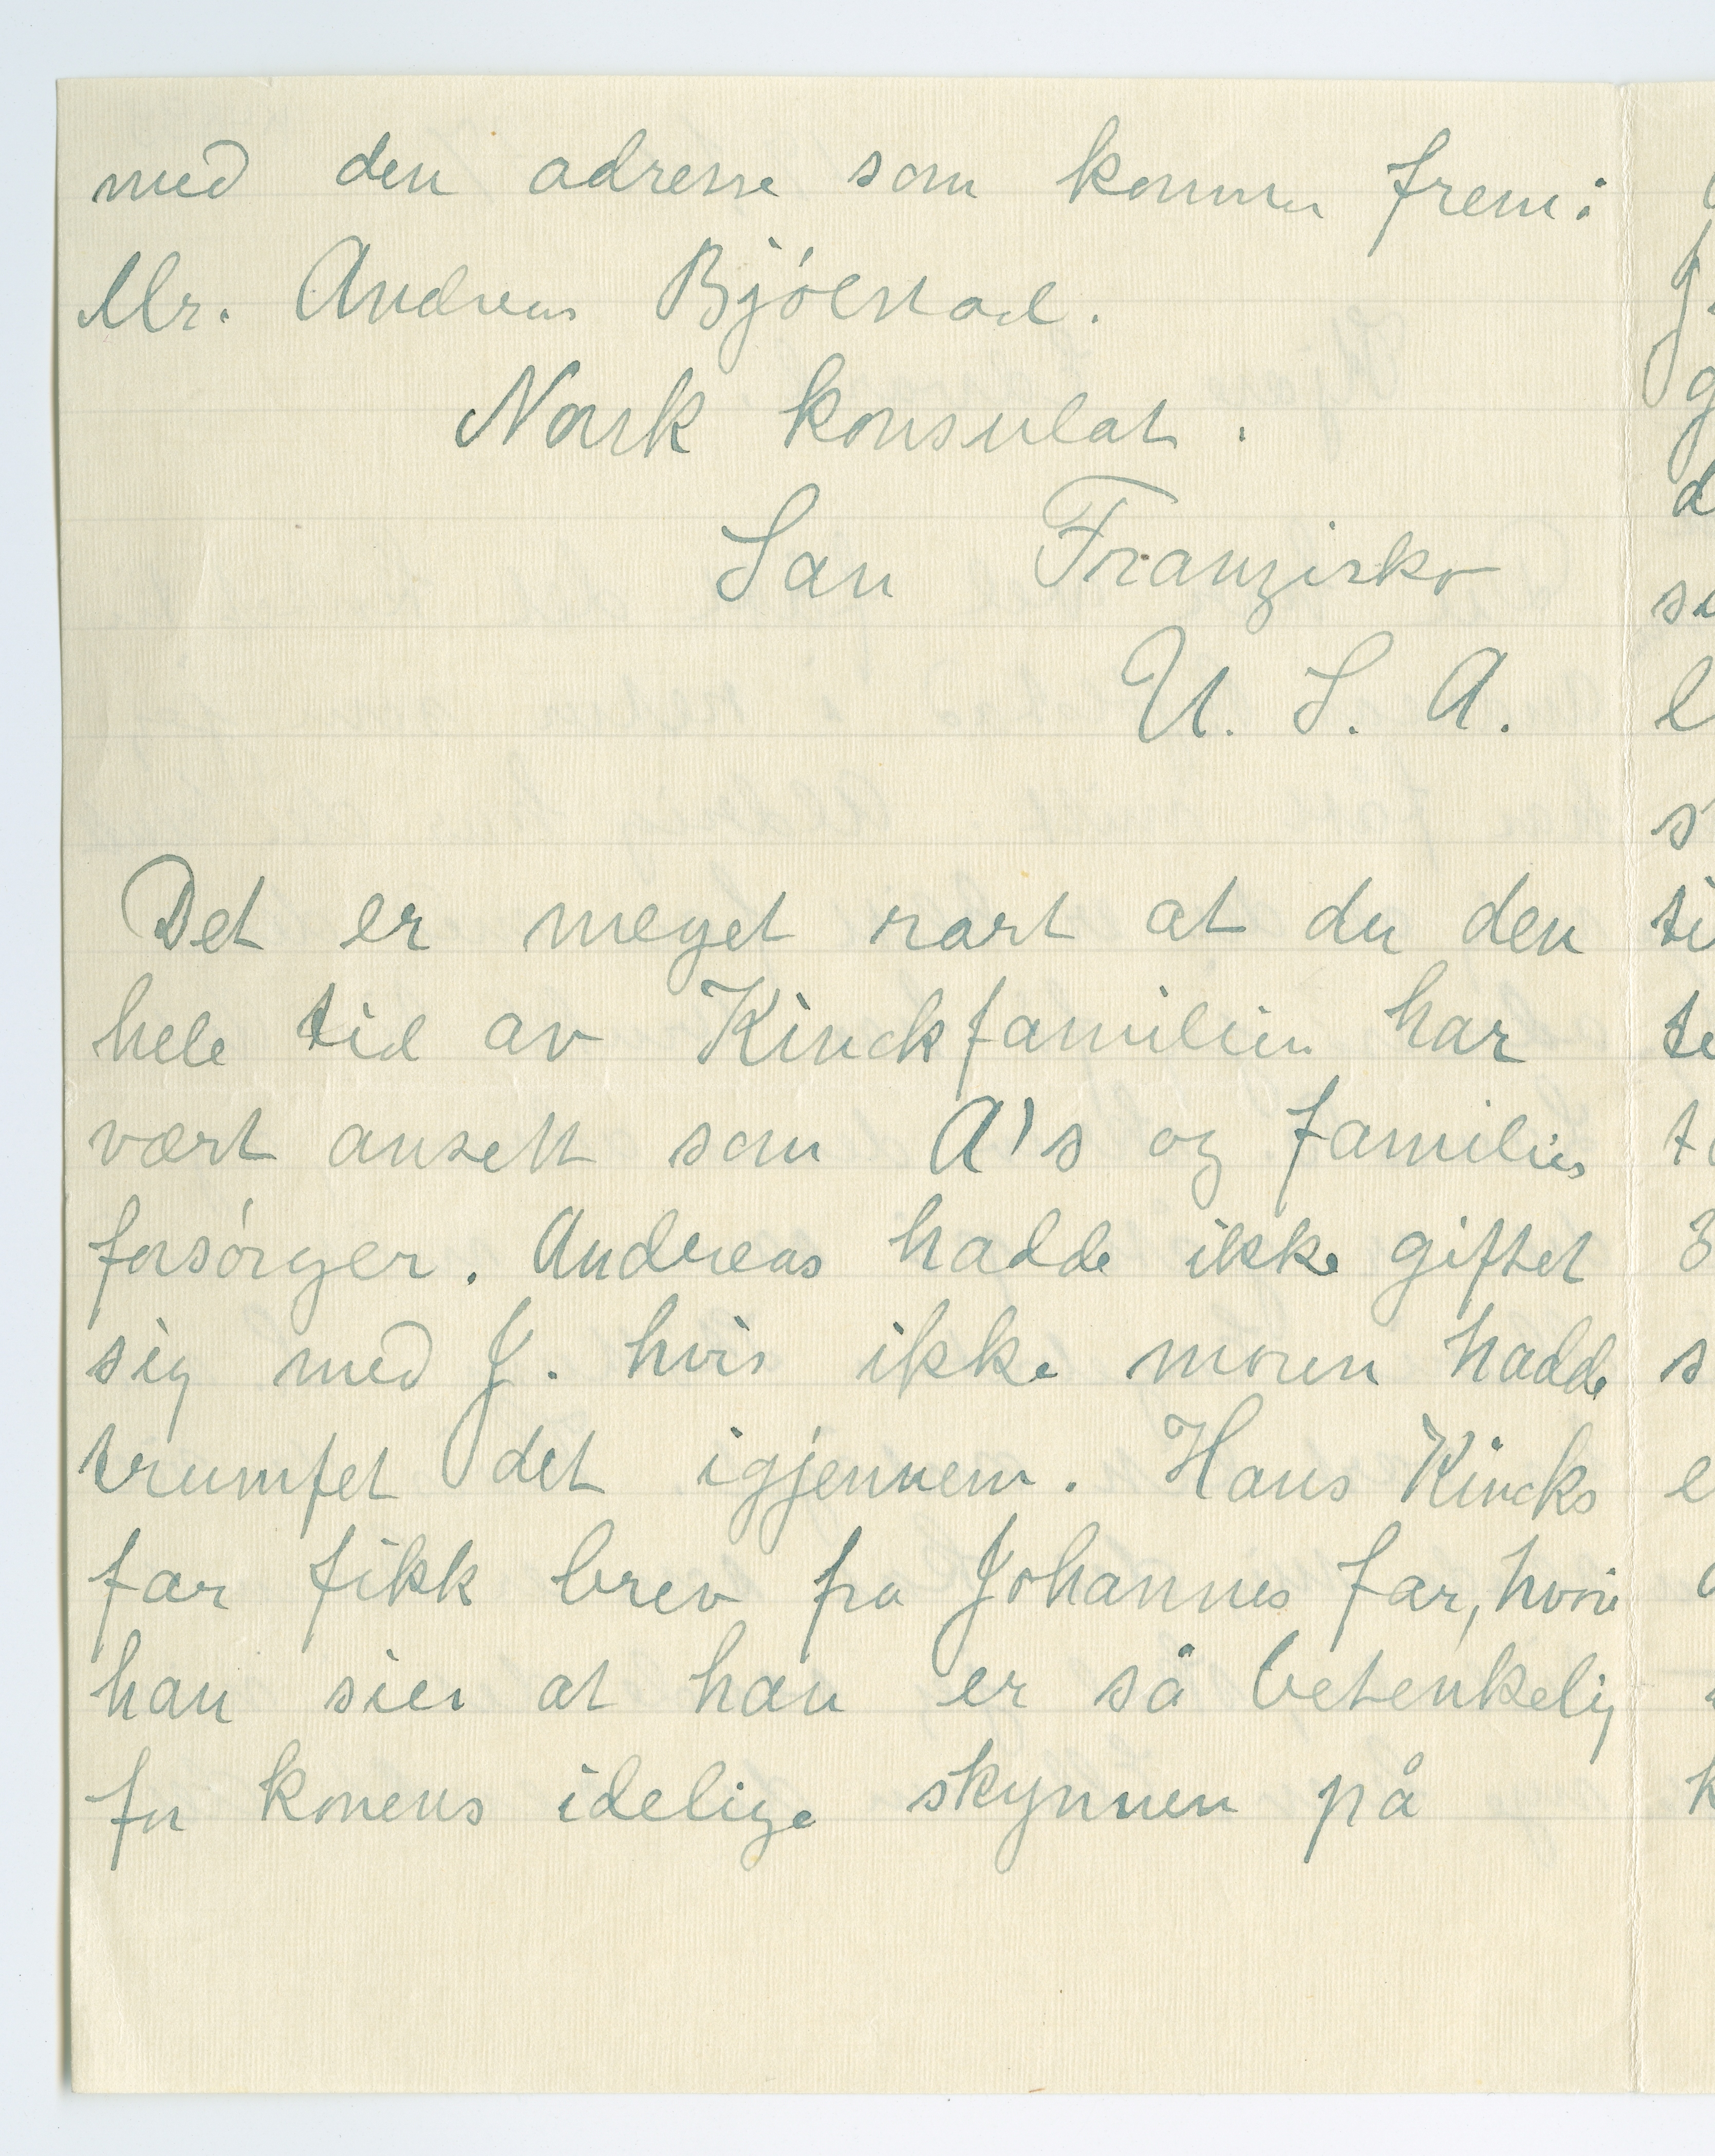 med den adresse som kommer frem:
Mr. Andreas Bjölstad.
Norsk konsulat.
San Franzisko
U. S. A.
Det er meget rart at du den
hele tid av Kinckfamilien har
vært ansett som A's og families
forsórger. Andreas hadde ikke giftet
sig med J. hvis ikke moren hadde
trumfet det igjennem. Hans Kincks
far fikk brev fra Johannes far, hvori
han sier at han er så betenkelig
for konens idelige skynnen på